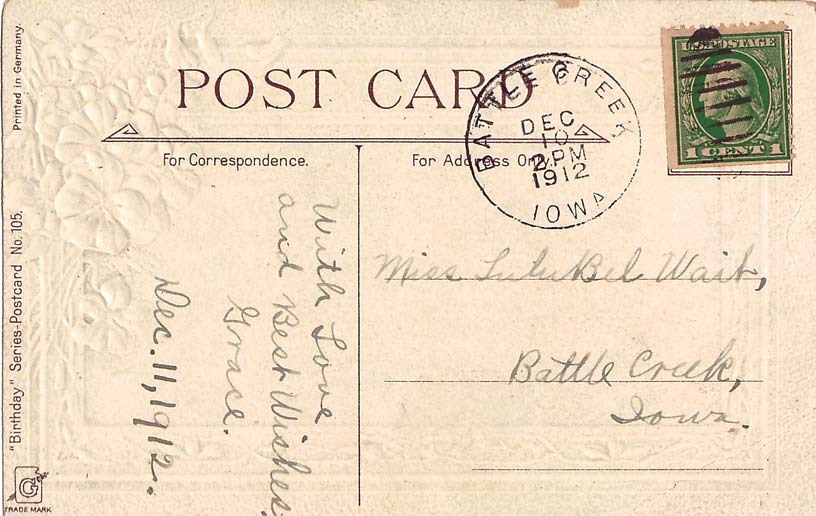 POST CARD
For Correspondence.
For Address Only.
BATTLE CREEK
DEC
10
2 PM
1912
IOWA
U.S. POSTAGE
1 CENT 1
With Love
and Best Wishes,
Grace.
Dec. 11, 1912.
Miss Lulu Bel Wait,
Battle Creek,
Iowa.
Printed in Germany.
"Birthday" Series-Postcard No. 105.
G
TRADE MARK